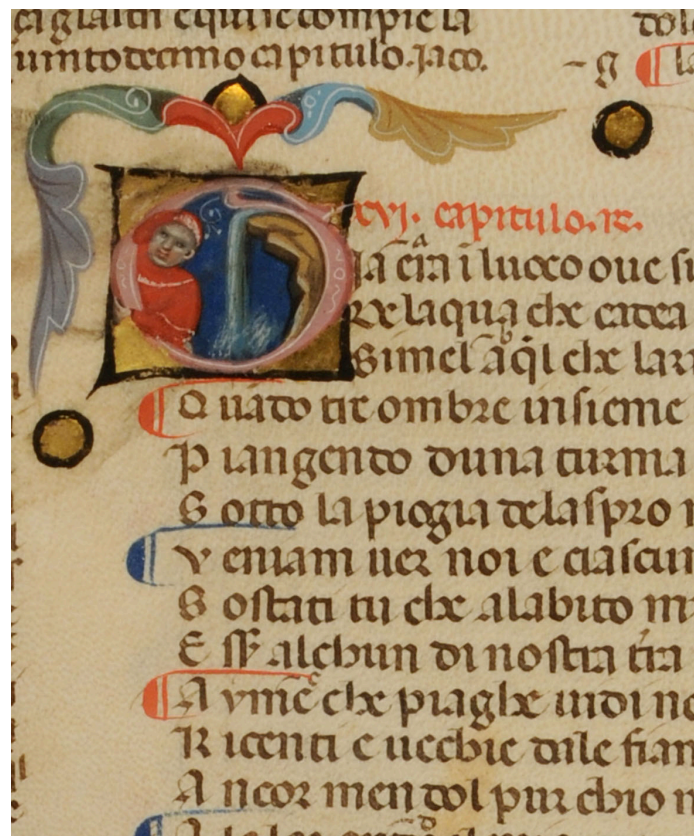 equi se compie la
uintodecimo capitulo. Jaco.
xvi. capitulo.
ia e͞ra ī luoco oue si
De laqua che cadea
Simel a q̄l che lar
Quado tre ombre insieme
Piangendo duna turma
Sotto la piogia delaspro
Veniam uer noi e ciascun
Sostati tu che alabito m
E ss̄ alchun di nostra tr̄a
Aymē che piaghe uidi ne
Ricenti e uecchie dale fiam
Ancor men dol pur chio